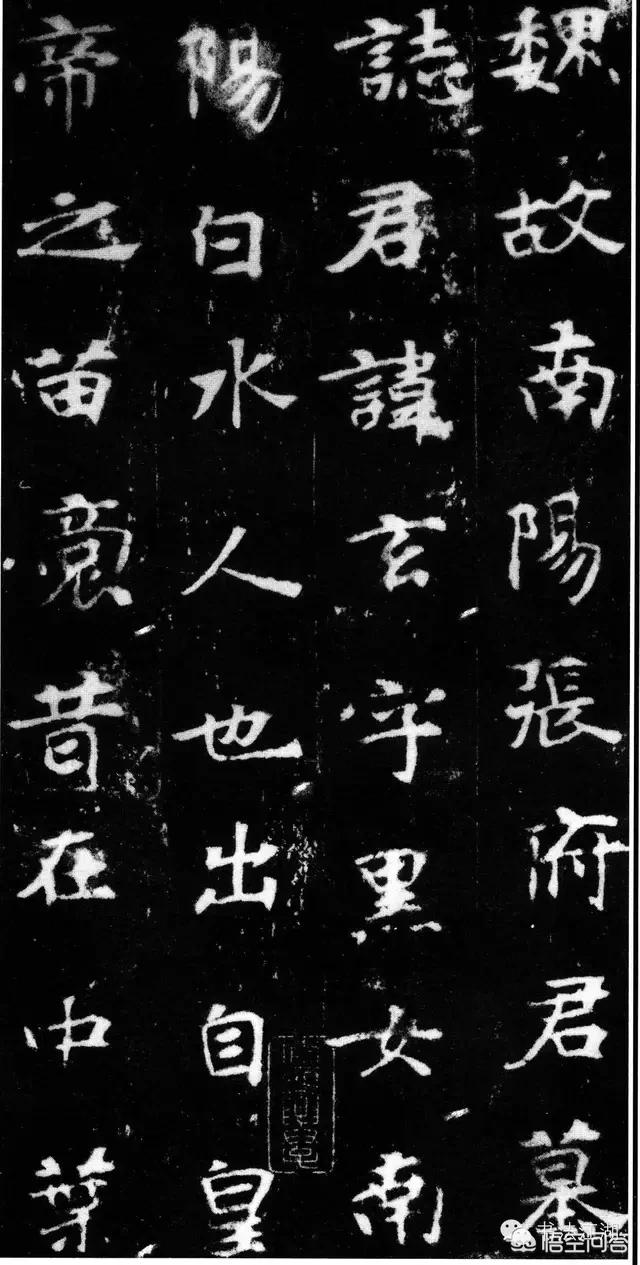 魏故南陽張府君墓
誌君諱玄字黑女南
陽白水人也出自皇
帝之苗裔昔在中葉
悟空问答